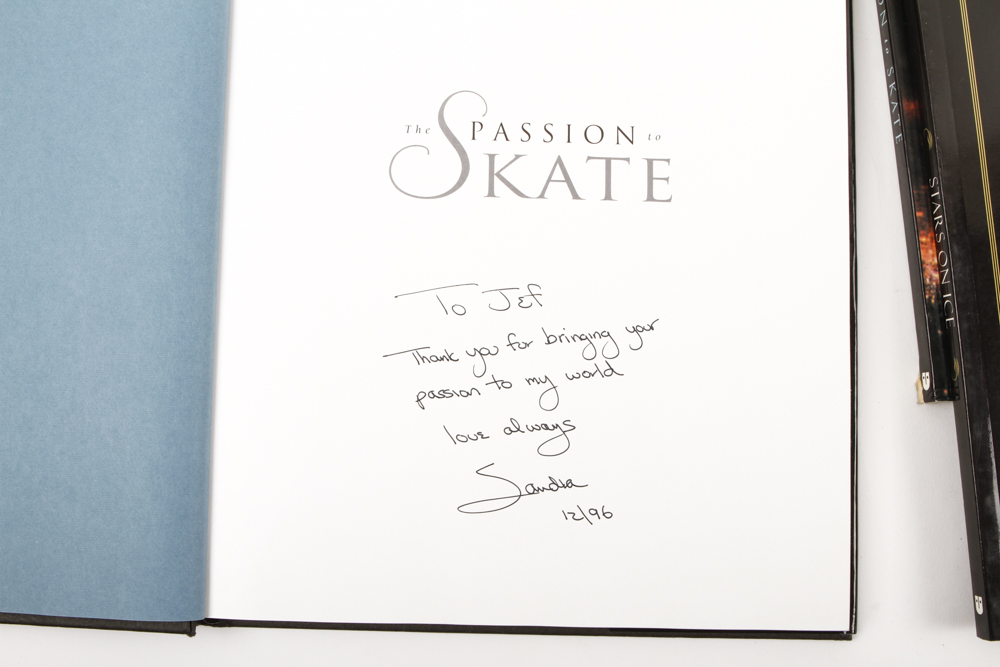 The PASSION to
SKATE
To Jef
Thank you for bringing your
passion to my world
love always
Sandra
12/96
ON to SKATE
STARS ON ICE